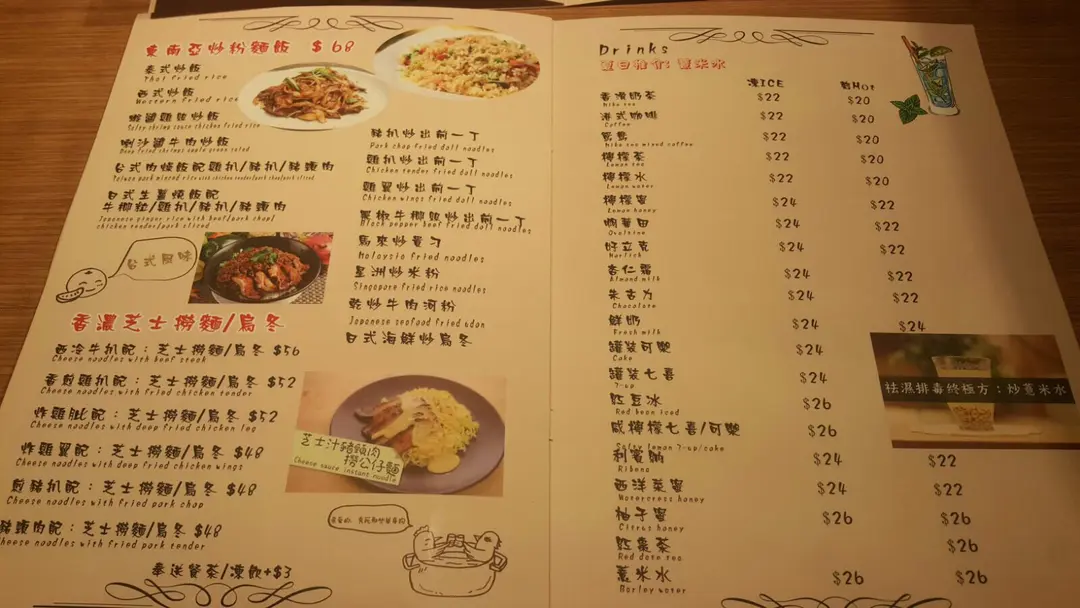 東南亞炒粉麵飯 $68
泰式炒飯
Thai fried rice
西式炒飯
Western fried rice
鹹蝦醬雞粒炒飯
Salty shrimp sauce chicken fried rice
喇沙醬牛肉炒飯
台式肉燥飯配雞扒/豬扒/豬頸肉
日式生薑燒飯配
牛柳粒/雞扒/豬扒/豬頸肉
Japanese ginger rice with beef/pork chop/
chicken tender/pork sliced
豬扒炒出前一丁
Pork chop fried doll noodles
雞扒炒出前一丁
Chicken tender fried doll noodles
雞翼炒出前一丁
Chicken wings fried doll noodles
黑椒牛柳粒炒出前一丁
Black pepper beef fried doll noodles
馬來炒貴刁
Malaysia fried noodles
星洲炒米粉
Singapore fried rice noodles
乾炒牛肉河粉
Japanese seafood fried udon
日式海鮮炒烏冬
台式風味
香濃芝士撈麵/烏冬
西冷牛扒配：芝士撈麵/烏冬 $56
Cheese noodles with beef steak
香煎雞扒配：芝士撈麵/烏冬 $52
Cheese noodles with fried chicken tender
炸雞髀配：芝士撈麵/烏冬 $52
Cheese noodles with deep fried chicken leg
炸雞翼配：芝士撈麵/烏冬 $48
Cheese noodles with deep fried chicken wings
煎豬扒配：芝士撈麵/烏冬 $48
Cheese noodles with fried pork chop
豬頸肉配：芝士撈麵/烏冬 $48
Cheese noodles with fried pork tender
芝士汁豬頸肉
撈公仔麵
Cheese sauce instant noodle
奉送餐茶/凍飲+$3
Drinks
夏日推介: 薏米水
凍ICE 熱Hot
香滑奶茶 $22 $20
港式咖啡 $22 $20
Coffee
鴛鴦 $22 $20
Milk tea mixed coffee
檸檬茶 $22 $20
Lemon tea
檸檬水 $22 $20
Lemon water
檸檬蜜 $24 $22
Lemon honey
阿華田 $24 $22
Ovaltine
好立克 $24 $22
Horlick
杏仁霜 $24 $22
Almond milk
朱古力 $24 $22
Chocolate
鮮奶 $24 $24
Fresh milk
罐裝可樂 $24
Coke
罐裝七喜 $24
7-up
紅豆冰 $26
Red bean iced
咸檸檬七喜/可樂 $26
Salty lemon 7-up/coke
利賓納 $24 $22
Ribena
西洋菜蜜 $24 $22
Watercress honey
柚子蜜 $26 $26
Citrus honey
紅棗茶 $26
Red date tea
薏米水 $26 $26
Barley water
祛濕排毒終極方：炒薏米水